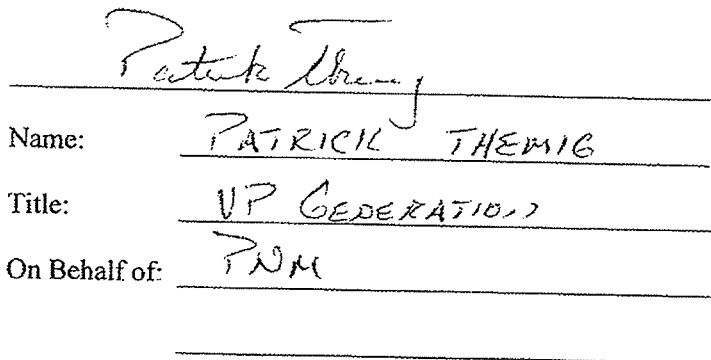 Patrick Themig
Name: PATRICK THEMIG
Title: VP GENERATION
On Behalf of: PNM